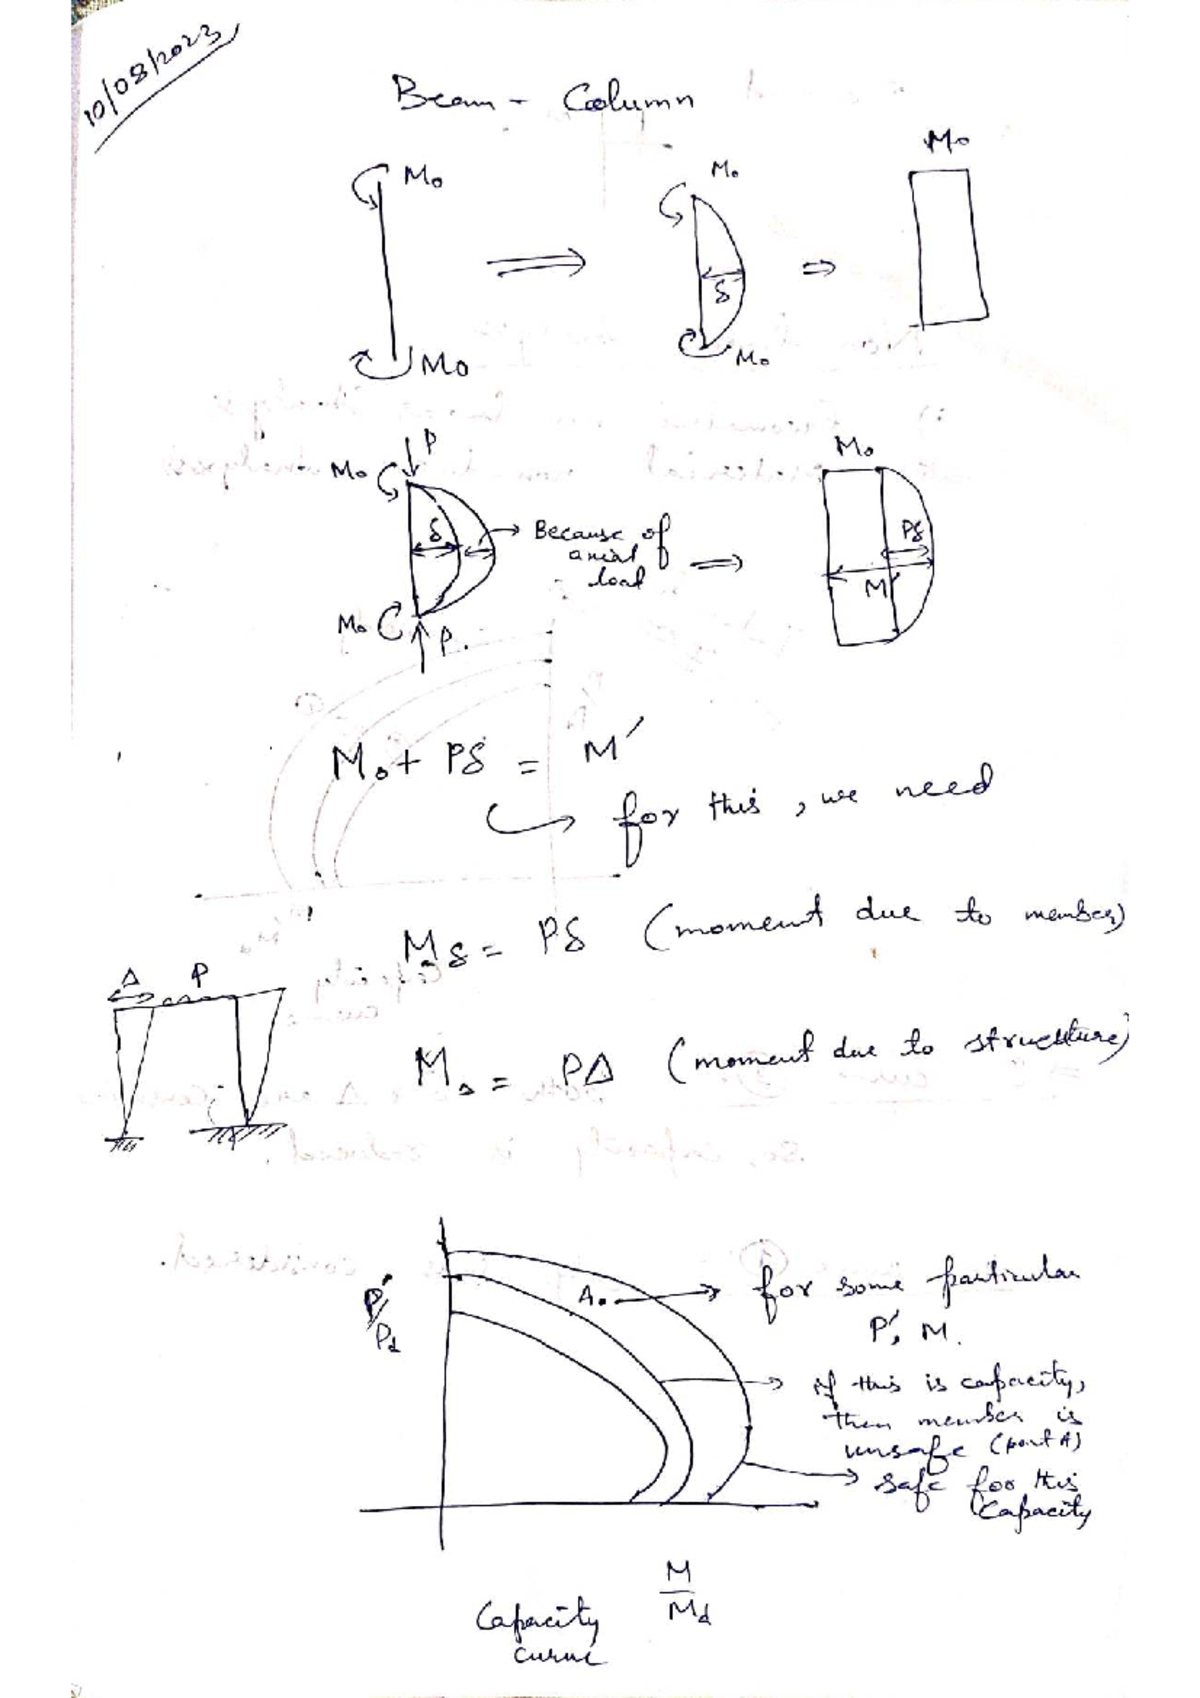 10/08/2023
Beam - Column
Mo
Mo
Mo
Mo
δ
Mo
Mo
P
Mo
δ
Because of
axial
load
Mo
P.
Mo
Pδ
M'
Mo + Pδ = M'
for this, we need
Mδ = Pδ (moment due to member)
Δ P
MΔ = PΔ (moment due to structure)
P'/Pd
A.
for some particular
P', M.
if this is capacity,
then member is
unsafe (point A)
safe for this
capacity
M/Md
Capacity
curve